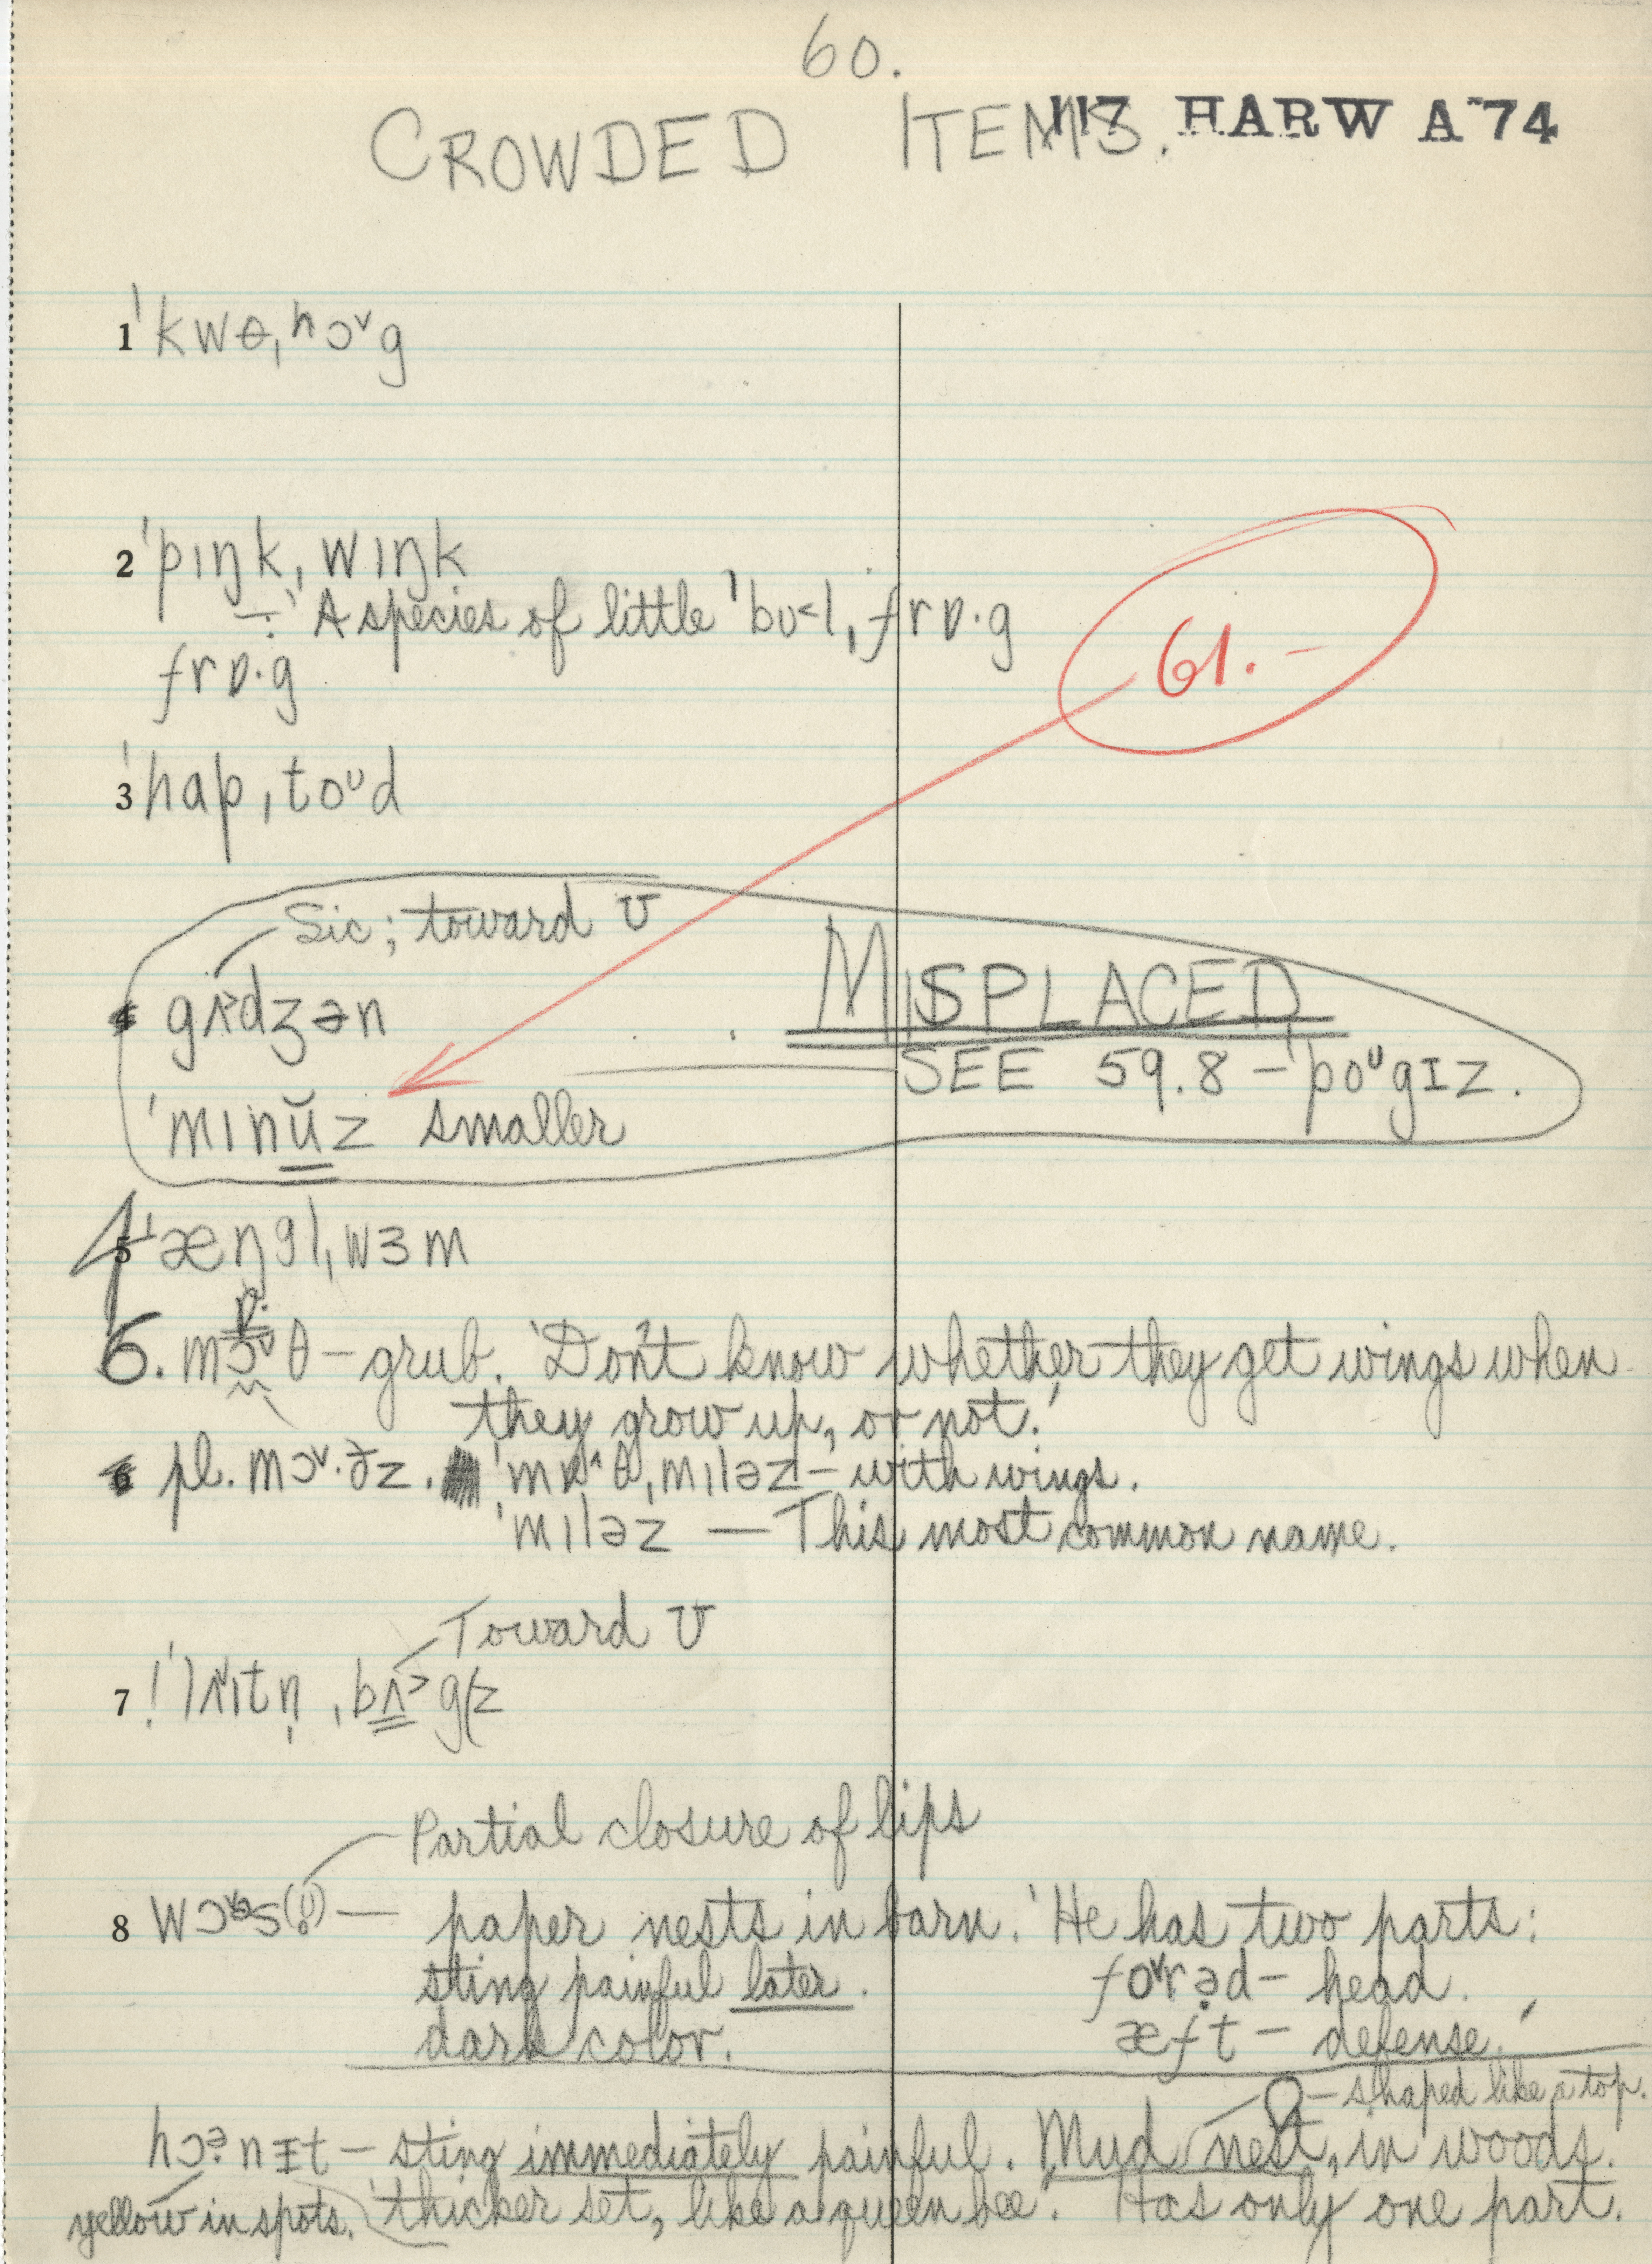 60.
CROWDED ITEMS. 117 HARW A 74
1 ˈkwɵˌhɔ˅g
2 ˈpɪŋkˌwɪŋk
÷ A species of little ˈbʊ˂lˌfrɒ·g
frɒ·g
61.-
3 ˈhɑpˌtoᶷd
Sic; toward ʊ
4 gʌdʒən MISPLACED
SEE 59.8 – ˈpoᶷgɪz.
ˈmɪnŭz smaller
4 5 ˈæŋglˌwɜm
ɒ·
6. mɔ˅θ – grub. 'Don't know whether they get wings when
they grow up, or not.'
6 pl. mɔ˅·ðz. ˌmɪləz – with wings.
ˈmɪləz — This most common name.
Toward ʊ
7 !
Partial closure of lips
8 — paper nests in barn. 'He has two parts:
sting painful later. fo˅rəd – head.
dark color. æft – defense.'
– shaped like a top.
hɔᵊ·nɪt – sting immediately painful. Mud nest, in woods.
yellow in spots. 'thicker set, like a queen bee.' Has only one part.